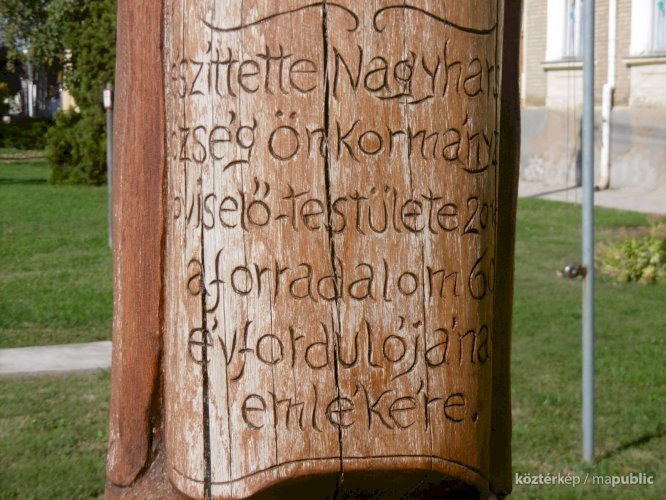 szíttette Nagyhars
zség Önkormányz
viselő-testülete 20
a forradalom 60
évfordulójána
emlékére.
köztérkép / mapublic